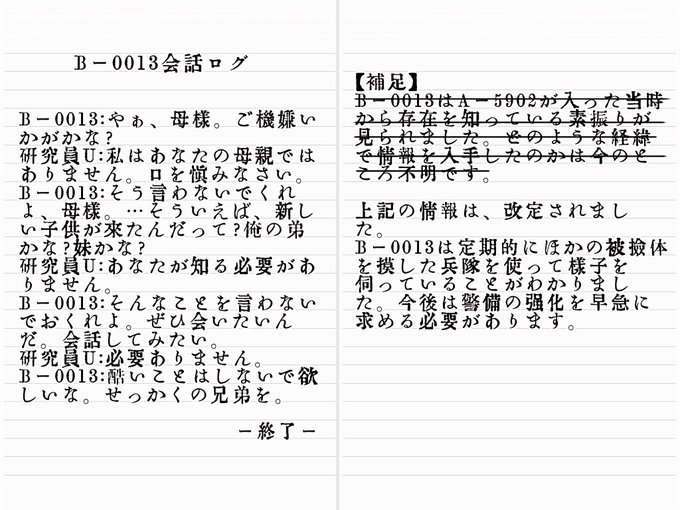 B－0013会話ログ
B－0013:やぁ、母様。ご機嫌い
かがかな?
研究員U:私はあなたの母親では
ありません。口を慎みなさい。
B－0013:そう言わないでくれ
よ、母様。…そういえば、新し
い子供が来たんだって?俺の弟
かな?妹かな?
研究員U:あなたが知る必要があ
りません。
B－0013:そんなことを言わない
でおくれよ。ぜひ会いたいん
だ。会話してみたい。
研究員U:必要ありません。
B－0013:酷いことはしないで欲
しいな。せっかくの兄弟を。
－終了－
【補足】
B－0013はA－5902が入った当時
から存在を知っている素振りが
見られました。どのような経緯
で情報を入手したのかは今のと
ころ不明です。
上記の情報は、改定されまし
た。
B－0013は定期的にほかの被検体
を模した兵隊を使って様子を
伺っていることがわかりまし
た。今後は警備の強化を早急に
求める必要があります。